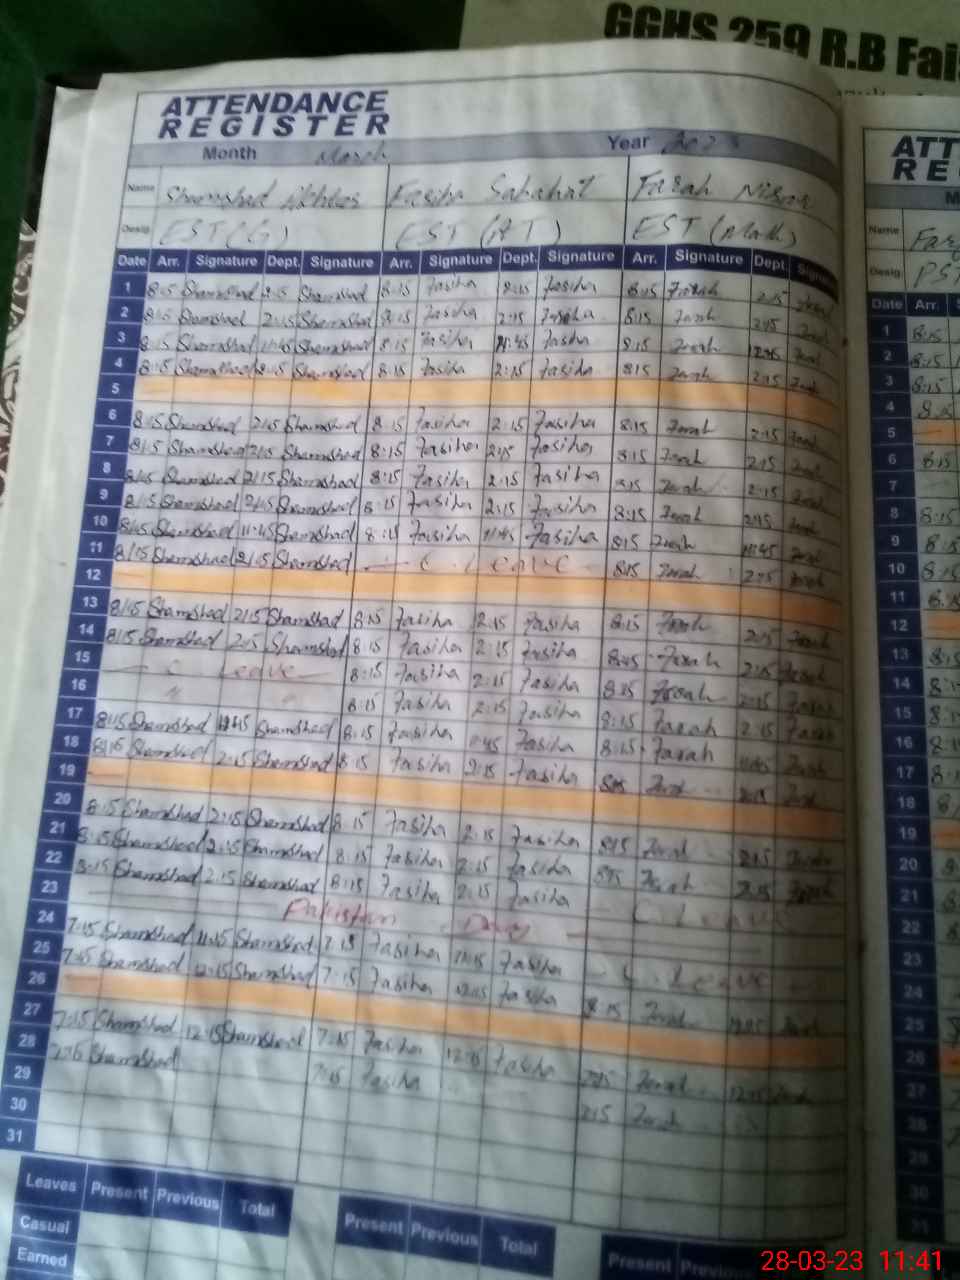 GGHS 259 R.B Fai
ATTENDANCE
REGISTER
Month March Year 2023
Name Shamshad Akhter Fasiha Sabahat Farah
Desig EST(G) EST (AT) EST (Math)
Date Arr. Signature Dept. Signature Arr. Signature Dept. Signature Arr. Signature Dept.
1 8:15 Shamshad 2:15 Shamshad 8:15 Fasiha 2:15 Fasiha 8:15 Farah 2:15 Farah
2 8:15 Shamshad 2:15 Shamshad 8:15 Fasiha 2:15 Fasiha 8:15 Farah 2:15 Farah
3 8:15 Shamshad 11:45 Shamshad 8:15 Fasiha 11:45 Fasiha 8:15 Farah Farah
4 8:15 Shamshad 2:15 Shamshad 8:15 Fasiha 2:15 Fasiha 8:15 Farah 2:15 Farah
5
6 8:15 Shamshad 2:15 Shamshad 8:15 Fasiha 2:15 Fasiha 8:15 Farah 2:15 Farah
7 8:15 Shamshad 2:15 Shamshad 8:15 Fasiha 2:15 Fasiha 8:15 Farah 2:15 Farah
8 8:15 Shamshad 2:15 Shamshad 8:15 Fasiha 2:15 Fasiha 8:15 Farah 2:15 Farah
9 8:15 Shamshad 2:15 Shamshad 8:15 Fasiha 2:15 Fasiha 8:15 Farah 2:15 Farah
10 8:15 Shamshad 11:45 Shamshad 8:15 Fasiha 11:45 Fasiha 8:15 Farah 11:45 Farah
11 8:15 Shamshad 2:15 Shamshad C. Leave 8:15 Farah 2:15 Farah
12
13 8:15 Shamshad 2:15 Shamshad 8:15 Fasiha 2:15 Fasiha 8:15 Farah 2:15 Farah
14 8:15 Shamshad 2:15 Shamshad 8:15 Fasiha 2:15 Fasiha 8:15 Farah 2:15 Farah
15 C Leave 8:15 Fasiha 2:15 Fasiha 8:15 Farah 2:15 Farah
16 " " 8:15 Fasiha 2:15 Fasiha 8:15 Farah 2:15 Farah
17 8:15 Shamshad 11:45 Shamshad 8:15 Fasiha 11:45 Fasiha 8:15 Farah 11:45 Farah
18 8:15 Shamshad 2:15 Shamshad 8:15 Fasiha 2:15 Fasiha 8:15 Farah 2:15 Farah
19
20 8:15 Shamshad 2:15 Shamshad 8:15 Fasiha 2:15 Fasiha 8:15 Farah 2:15 Farah
21 8:15 Shamshad 2:15 Shamshad 8:15 Fasiha 2:15 Fasiha 8:15 Farah 2:15 Farah
22 8:15 Shamshad 2:15 Shamshad 8:15 Fasiha 2:15 Fasiha C Leave
23 Pakistan Day
24 7:15 Shamshad Shamshad 7:15 Fasiha Fasiha C. Leave
25 7:15 Shamshad 12:15 Shamshad 7:15 Fasiha 12:15 Fasiha Farah Farah
26
27 7:15 Shamshad 12:15 Shamshad 7:15 Fasiha 12:15 Fasiha 7:15 Farah 12:15 Farah
28 7:15 Shamshad 7:15 Fasiha 7:15 Farah
29
30
31
Leaves Present Previous Total Present Previous Total Present
Casual
Earned
ATT
RE
Name
Desig PST
Date Arr.
1 8:15
2 8:15
3 8:15
4
5
6 8:15
7
8 8:15
9 8:15
10 8:15
11
12
13 8:15
14
15
16
17
18
19
20
21
22
23
24
25
26
27
28
29
30
31
28-03-23 11:41